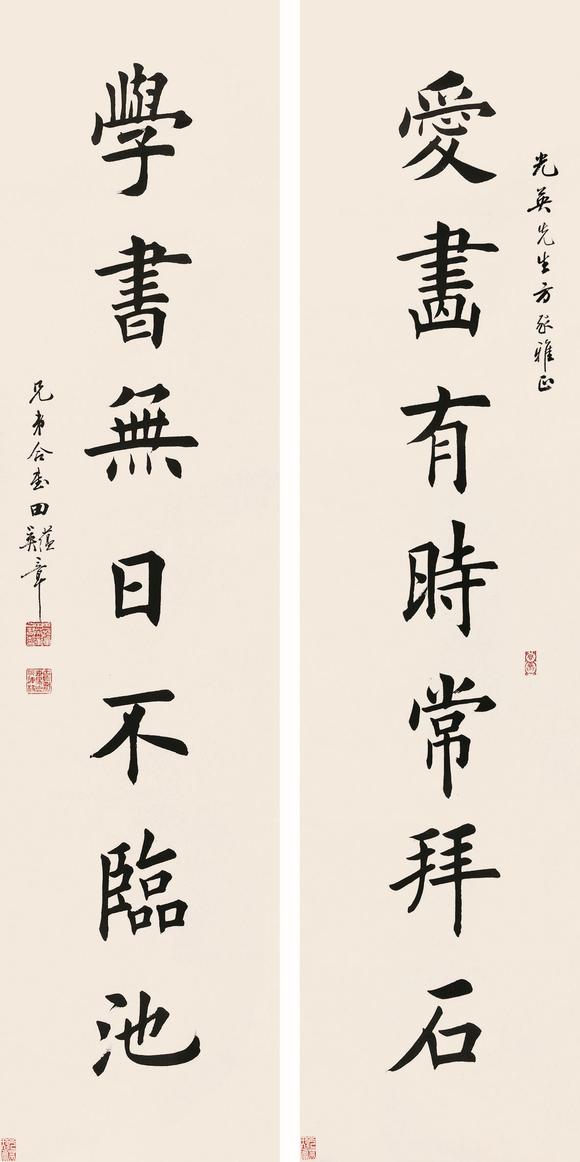 光英先生方家雅正
愛畵有時常拜石
學書無日不臨池
兄弟合書田蘊英章